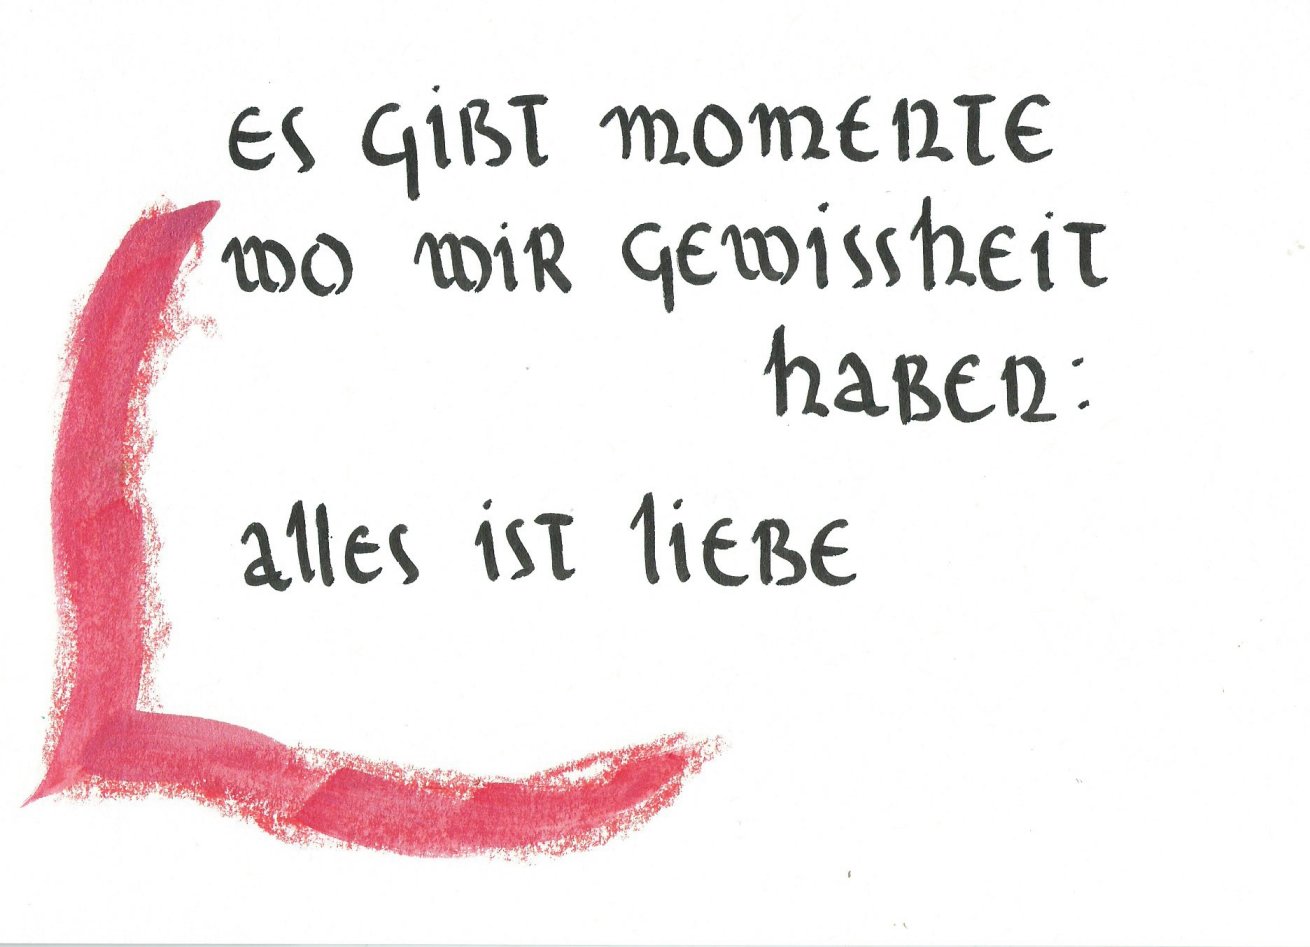 es gibt momente
wo wir gewissheit
haben:
alles ist liebe